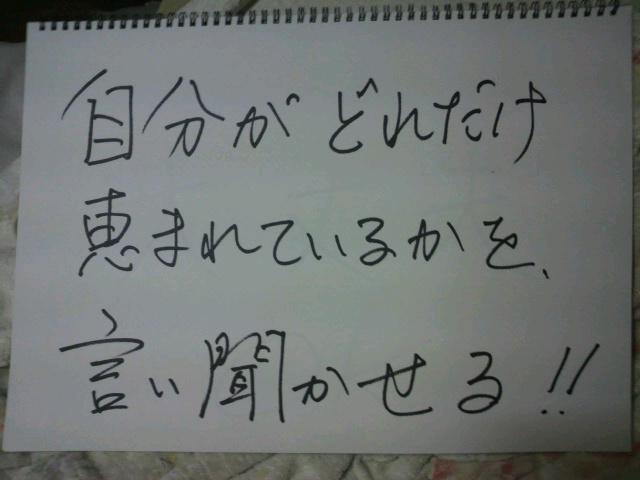 自分がどれだけ
恵まれているかを、
言い聞かせる!!